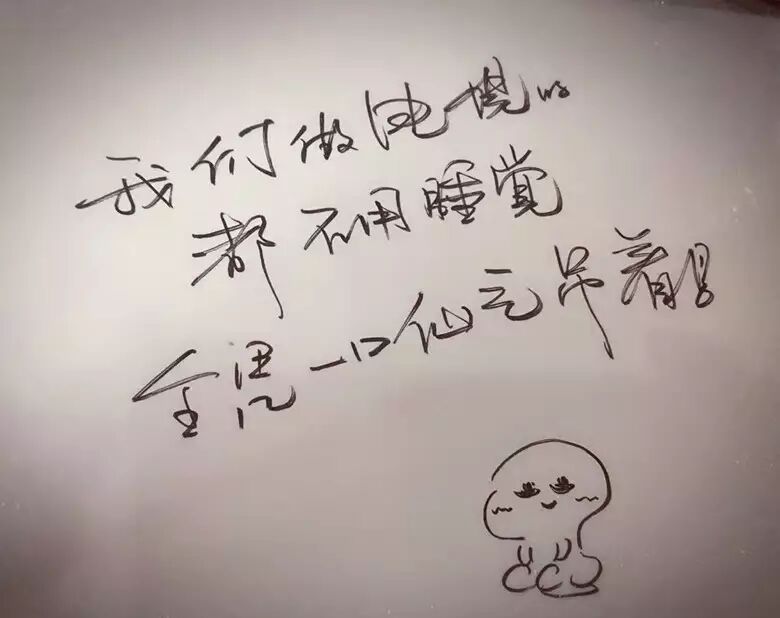 我们做境的
都不用睡觉
全一口仙气吊着